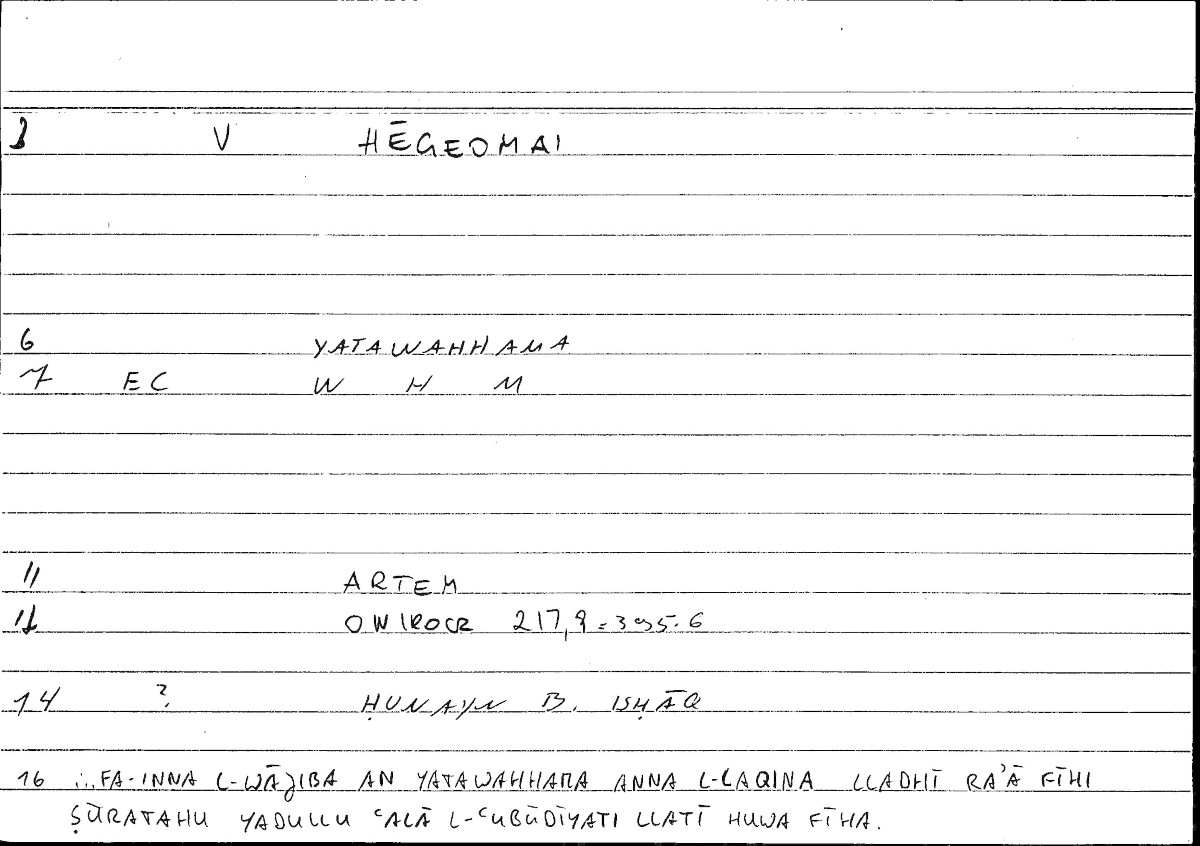 3 V HĒGEOMAI
6 YATAWAHHAMA
7 EC W H M
11 ARTEM
OWIROCR 217,9 = 395.6
14 ? ḤUNAYN B. ISḤĀQ
16 ... FA-INNA L-WĀJIBA AN YATAWAHHAMA ANNA L-LAQINA LLADHĪ RA'Ā FĪHI
ṢŪRATAHU YADULLU ʿALĀ L-ʿUBŪDĪYATI LLATĪ HUWA FĪHA.